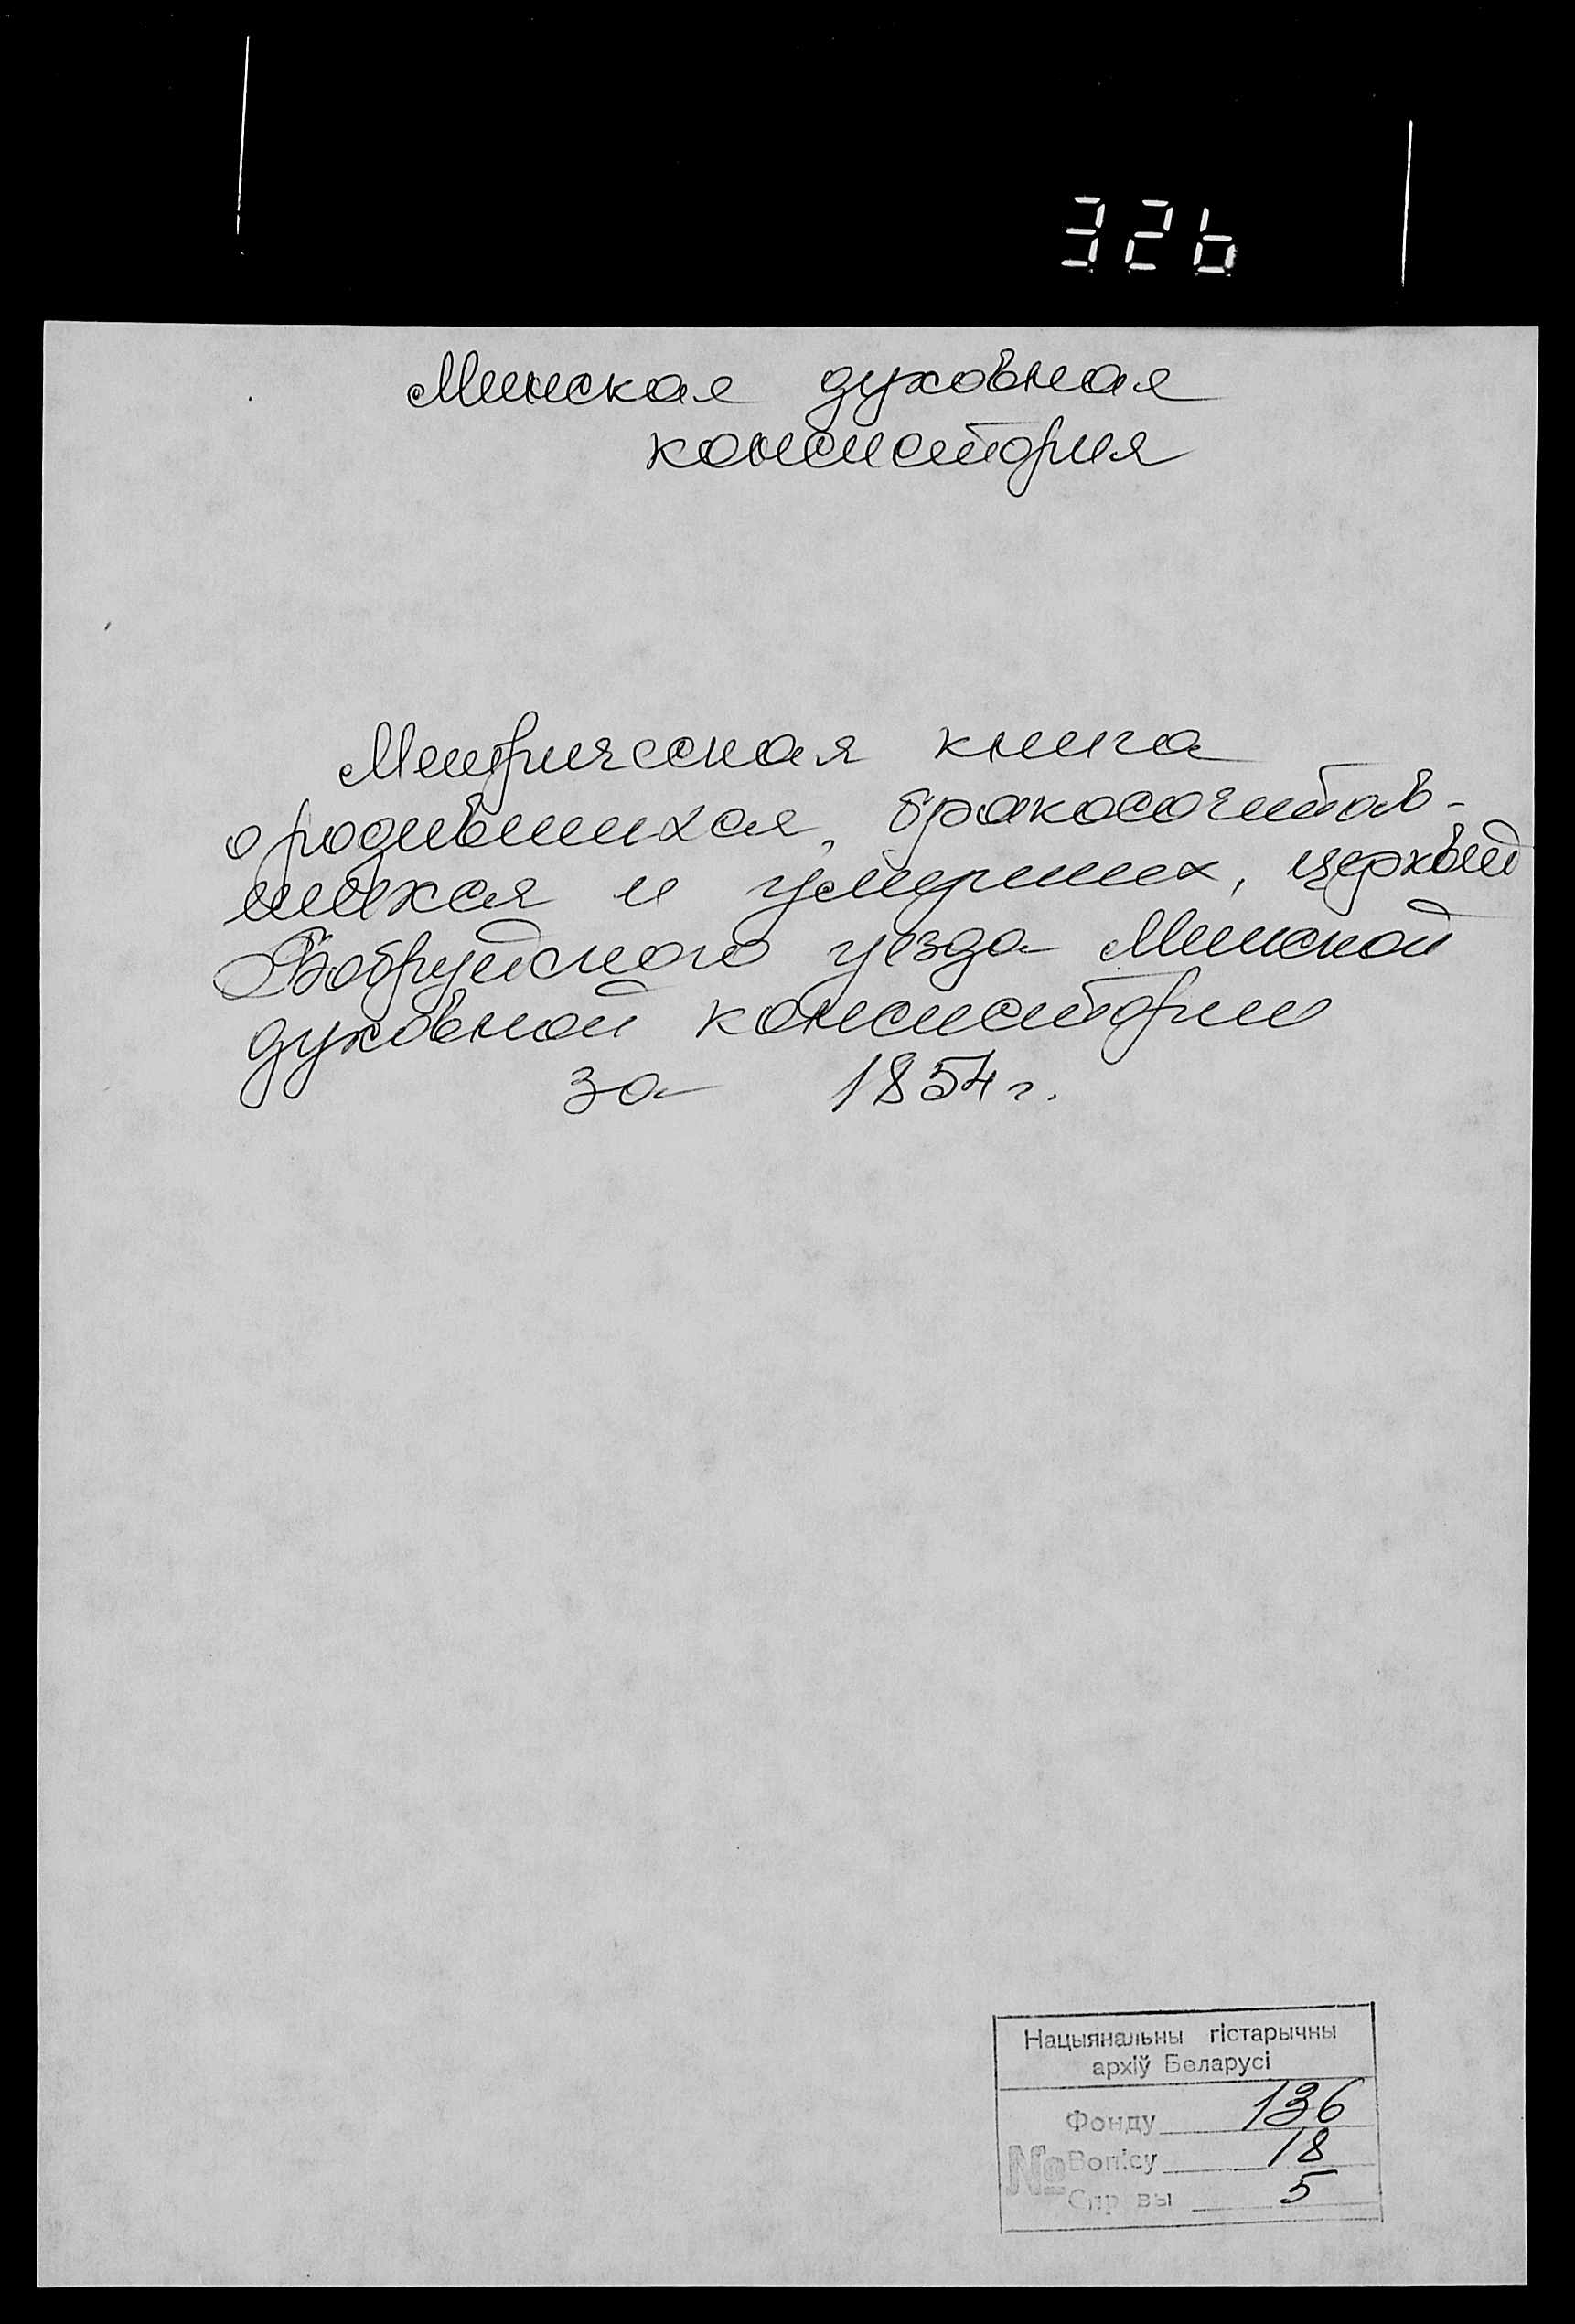 326
Минская духовная
консистория
Метрическая книга
о родившихся, бракосочетав-
шихся и умерших, церквей
Бобруйского уезда Минской
духовной консистории
за 1854 г.
Нацыянальны гістарычны
архіў Беларусі
Фонду 136
№ Вопісу 18
Справы 5